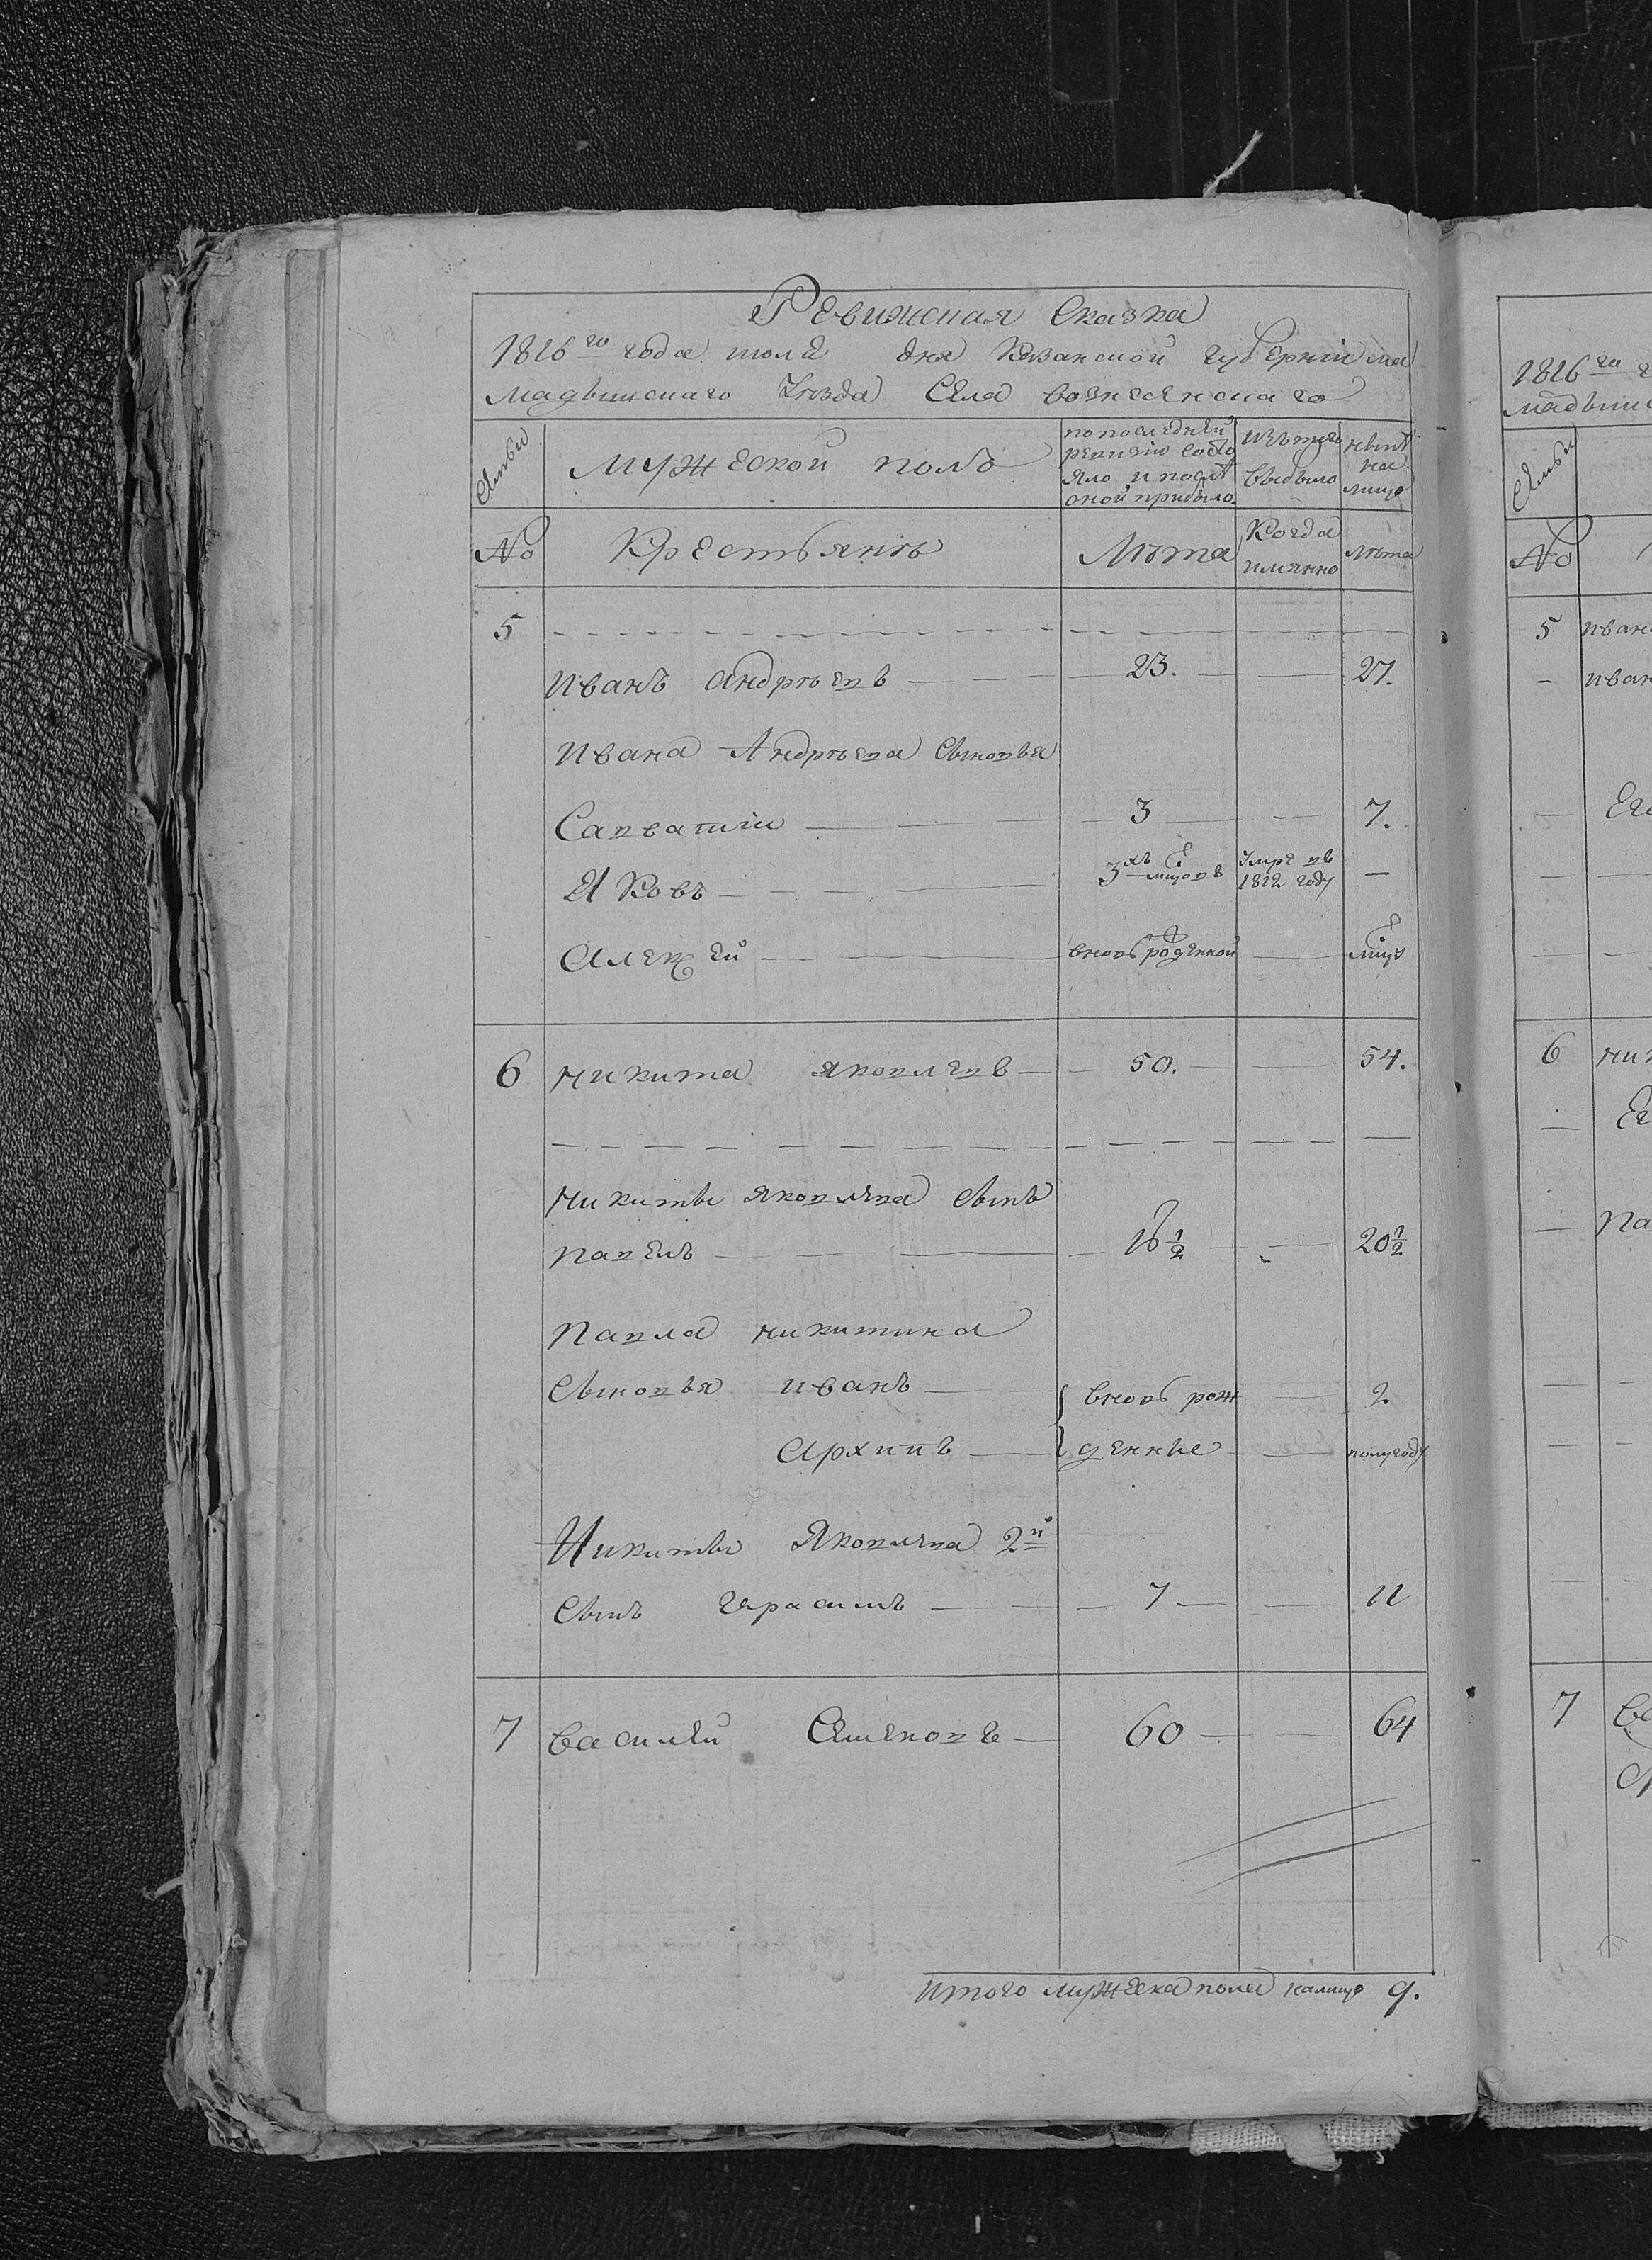 Ревижская сказка
1816го года июля дня Казанской губернии ма
мадышскаго Уезда Села вознесенскаго
Семьи
мужеской полъ
попоследней ревизии состояло и после оной прибыло.
Изътого выбыло
ныне налицо
№ Крестьянъ Лѣта Когда имянно Лѣта
5
Иванъ Андрѣевъ 23. 27.
Ивана Андрѣева Сыновья
Савватий 3 7.
Яковъ 3хъ мцовъ Умре въ 1812 году
Алексей вновь роденной мцъ
6 Никита Яковлевъ 50. 54.
Никиты Яковлева сынъ
Павелъ 16 1/2 20 1/2
Павла Никитина
Сыновья Иванъ вновь рож 2.
Архипъ денные полугоду
Никиты Яковлева 2й
Сынъ Герасимъ 7 11
7 Василей Семеновъ 60 64
Итого мужеска пола налицо 9.
1816го
мадыш
Семьи
№
5 Иван
Иван
Ег
6 Ник
Ег
Па
7